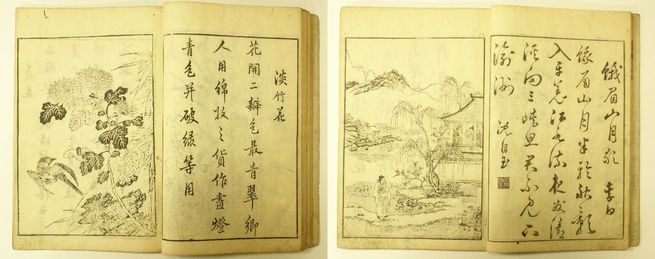 淡竹花
花開二瓣色最青翠鄉
人用綿收之貨作畫燈
青色并破綠等用
峨眉山月歌 李白
峨眉山月半輪秋影
入平羌江水流夜發清
溪向三峽思君不見下
渝州 沈自玉